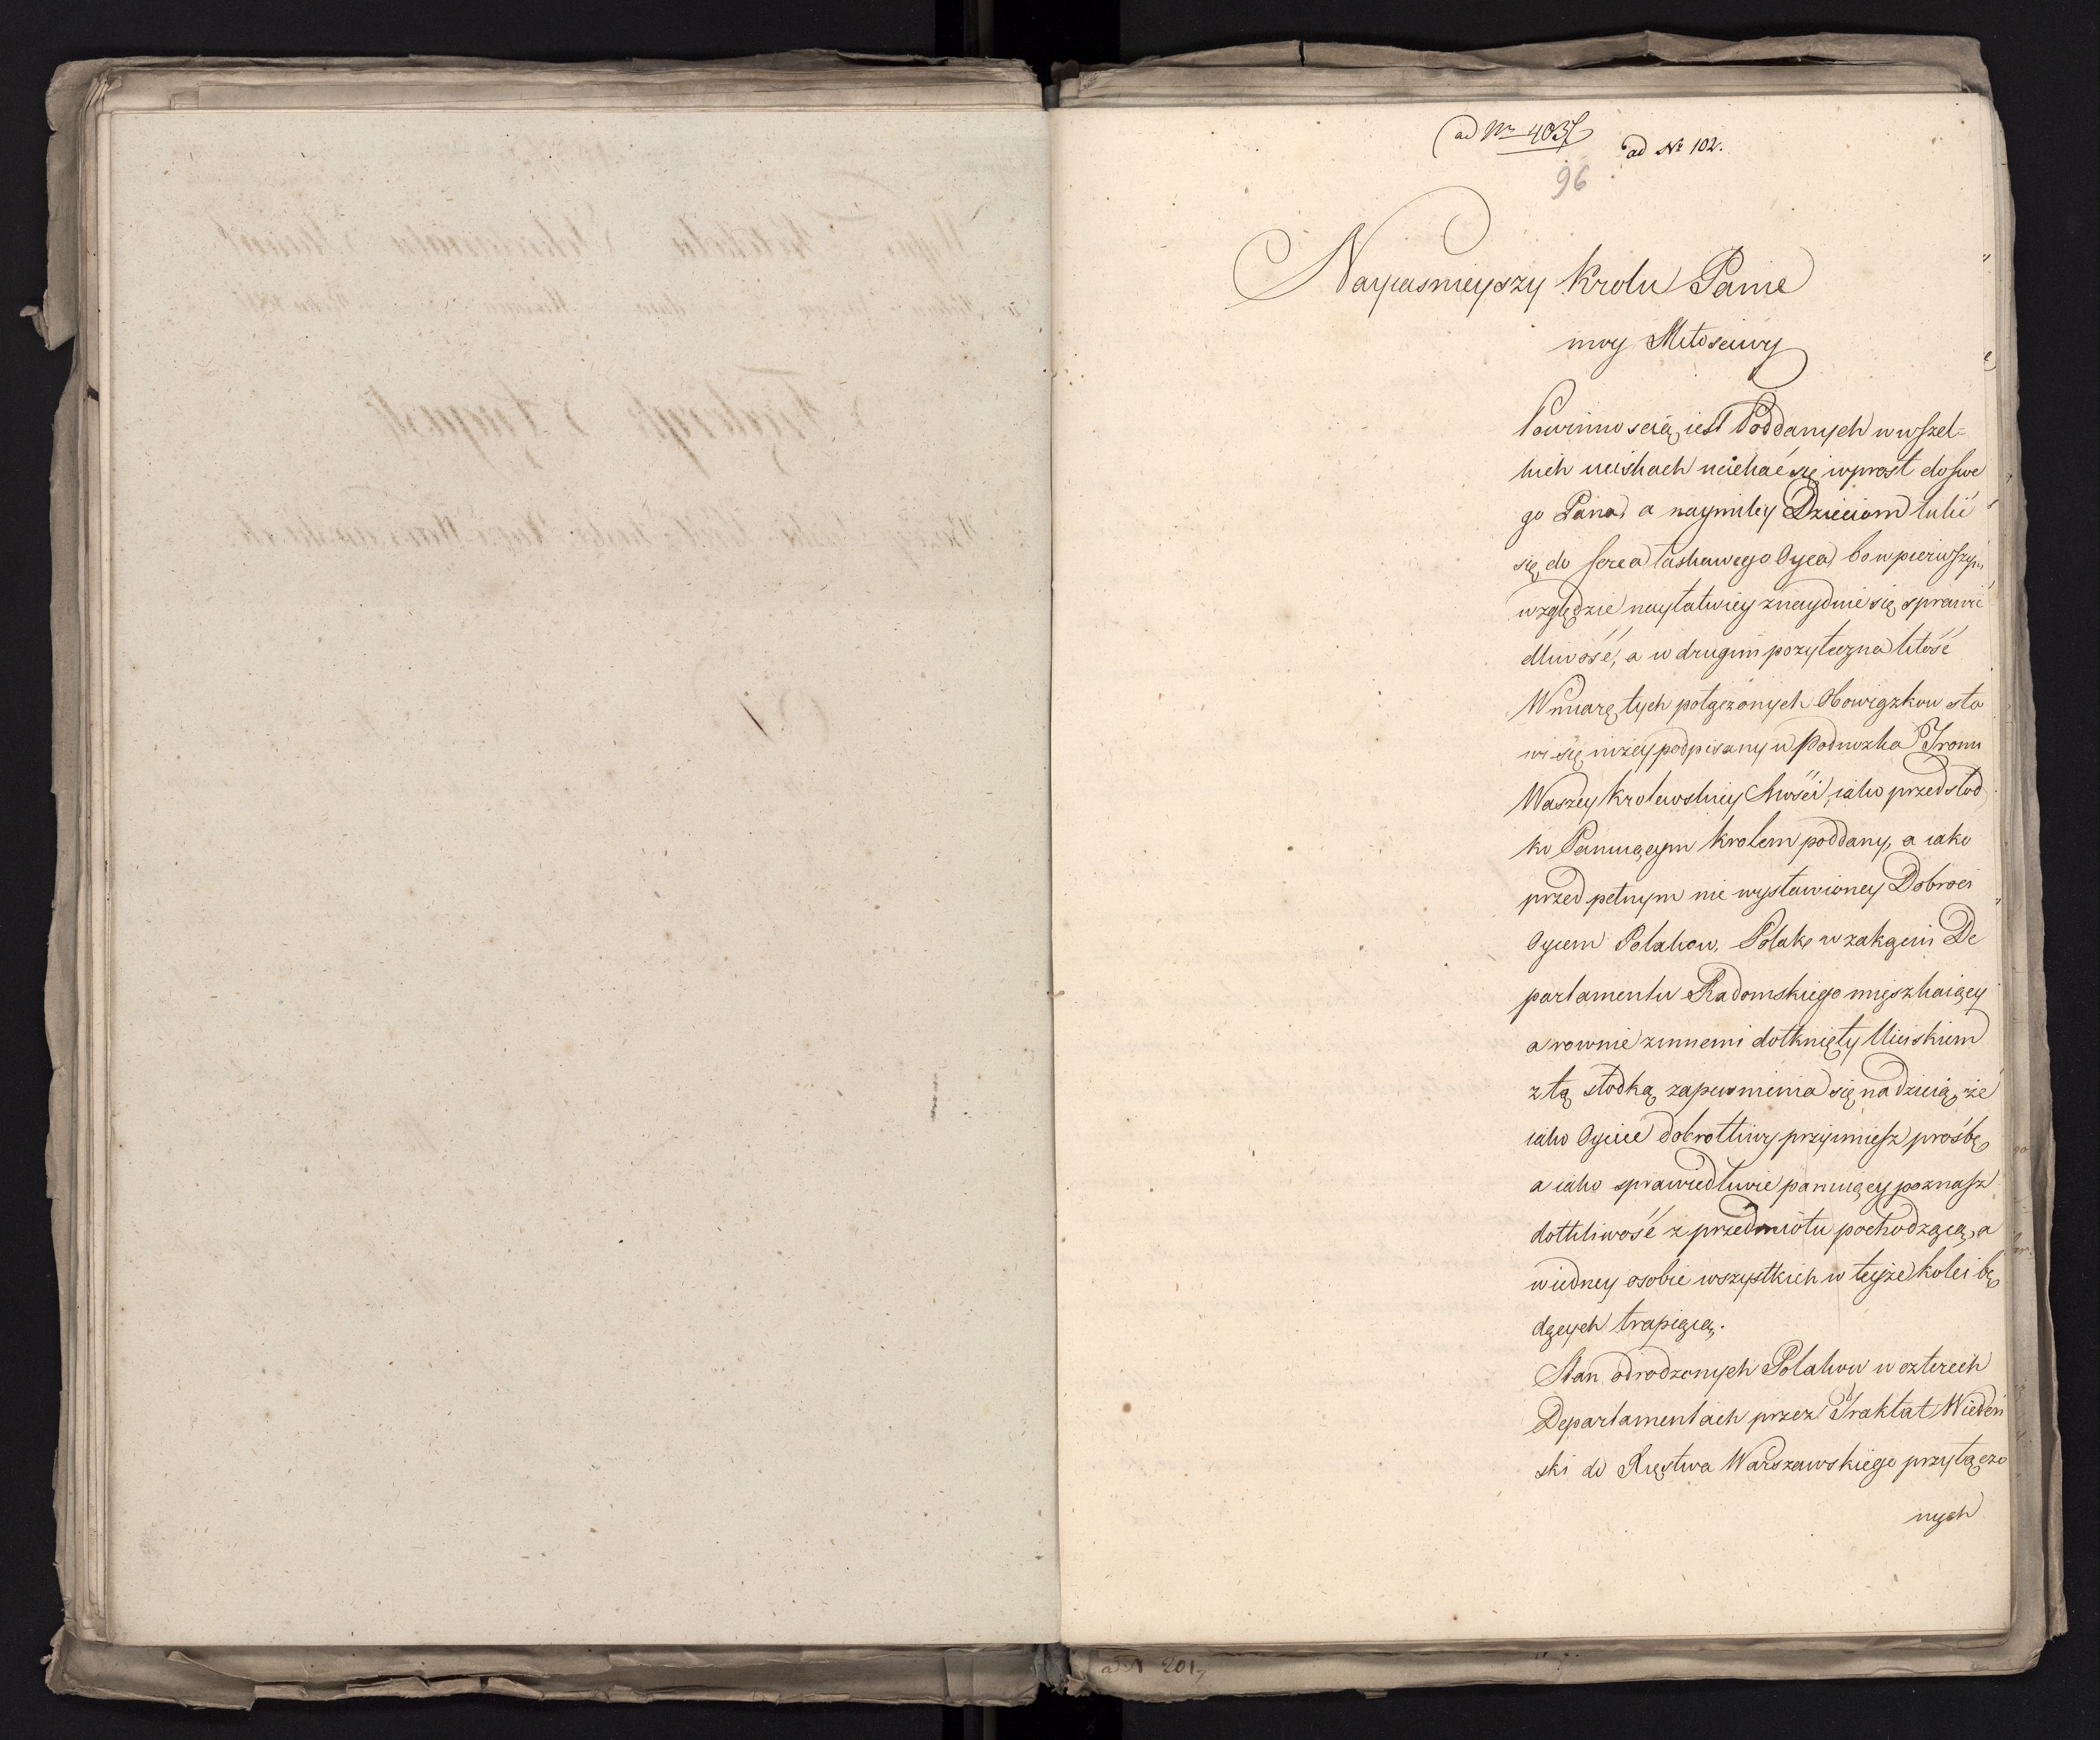 ad Nr 4037
ad No 102.
96
Nayiasnieyszy Krolu Panie
moy Miłosciwy
Powinnoscią iest Poddanych w wszel-
kich uciskach uciekać się wprost do swe
go Pana, a naymiley Dzieciom tulić
się do serca łaskawego Oyca, bo w pierwszym
względzie nayłatwiey znayduie się sprawie
dliwość, a w drugim pozyteczna litość
W miarę tych połączonych Obowiązkow sta
wi się niżey podpisany u Podnozka Tronu
Waszey Krolewskiey Mości, iako przed słod
ko Panuiącym Krolem poddany, a iako
przed pełnym nie wysławioney Dobroci
Oycem Polakow, Polak w zakąciu De
partamentu Radomskiego mięszkaiący
a rownie z innemi dotknięty Uciskiem
z tą słodką zapewnienia się nadzieią, że
iako Oyciec dobrotliwy przyimiesz prośbę
a iako sprawiedliwie panuiący poznasz
dotkliwość z przedmiotu pochodzącą, a
w iedney osobie wszystkich w teyże kolei bę
dących trapiącą.
Stan odrodzonych Polakow w czterech
Departamentach przez Traktat Wiedeń
ski do Xięstwa Warszawskiego przyłączo
nych
ad N 201,